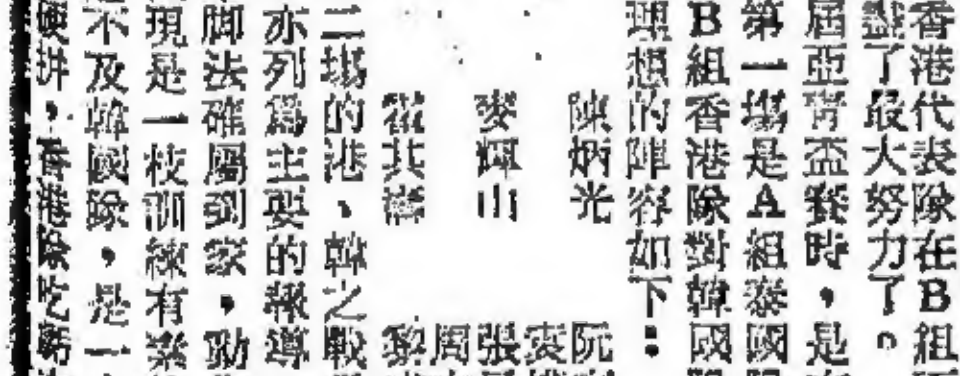 香港代表隊在B組
盡了最大努力了。
屆亞靑盃賽時,是
第一場是A組泰國
B組香港隊對韓國
理想的陣容如下:
陳炳光 阮
麥輝山 張
其 周
黎
二場的港、韓之戰
亦列爲主要的報導
脚法確屬到家,勁
現是一枝訓練有
不及韓國隊,是一
硬拼,香港隊吃